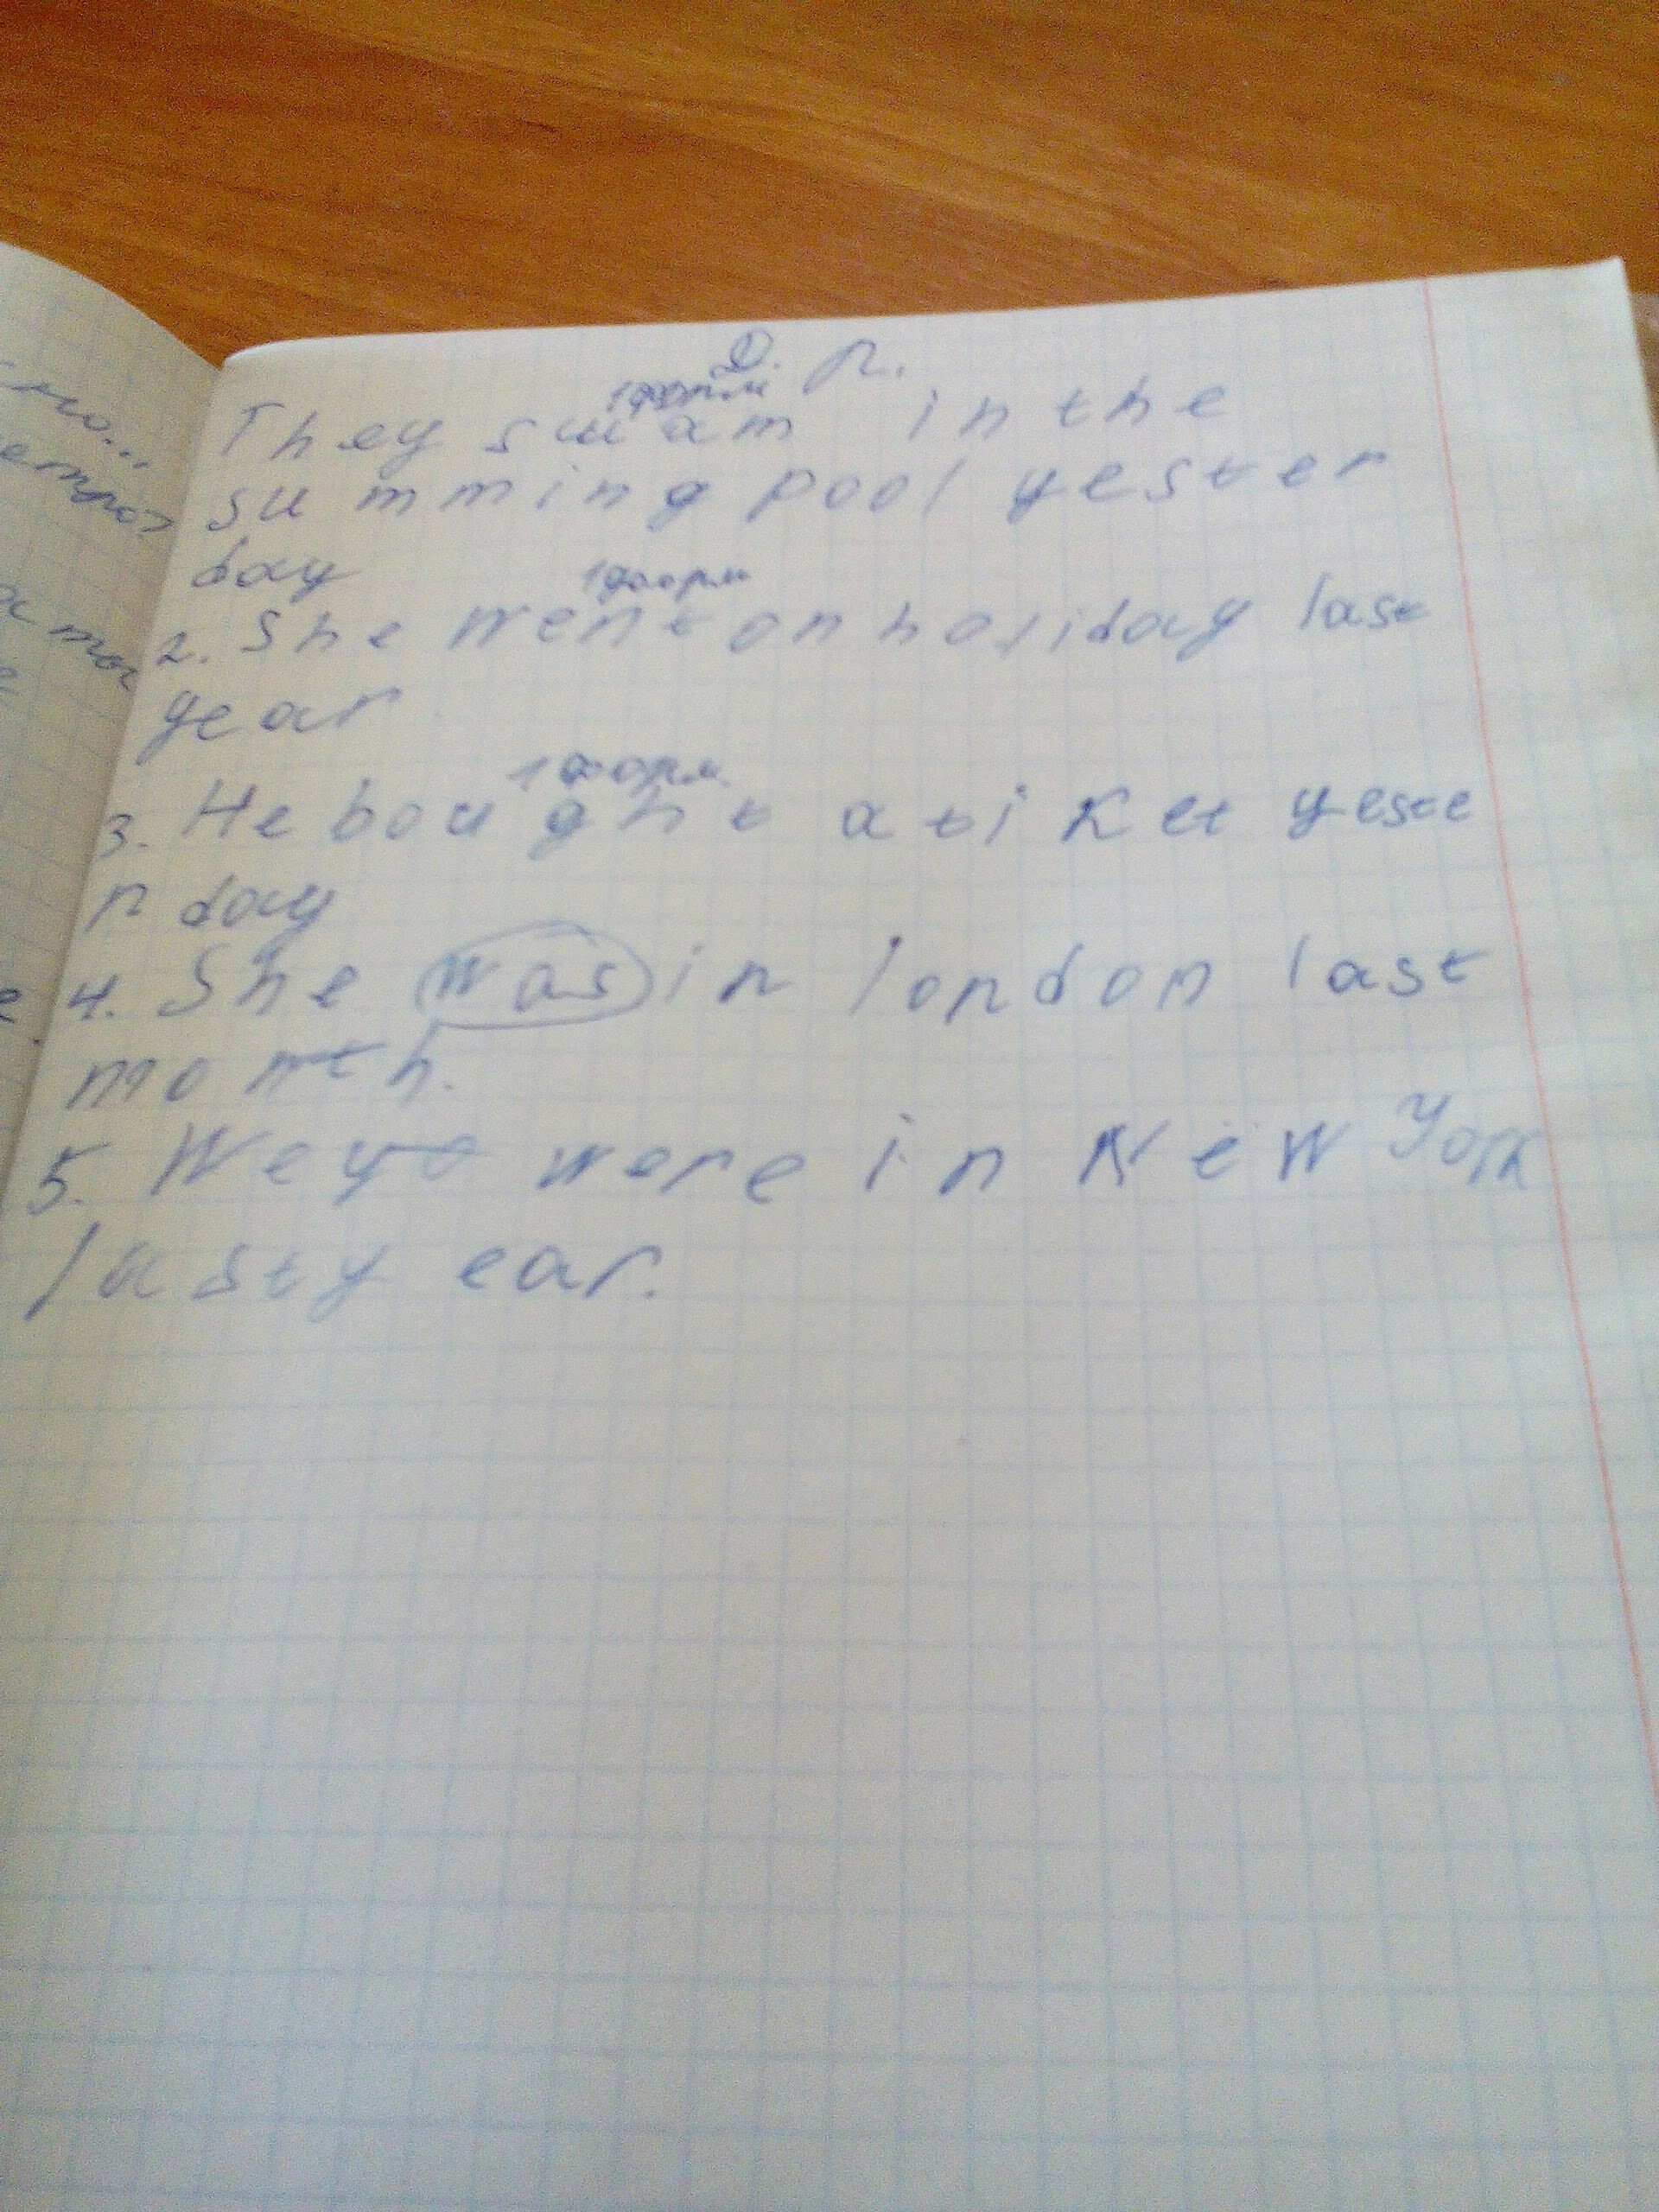 Д. р.
1 форм
They swam in the
summing pool yester
day
1 форм
2. She went on holiday last
year
1 форм.
3. He bought a tiket yeste
r day
4. She was in london last
month.
5. We yo were in New York
last year.